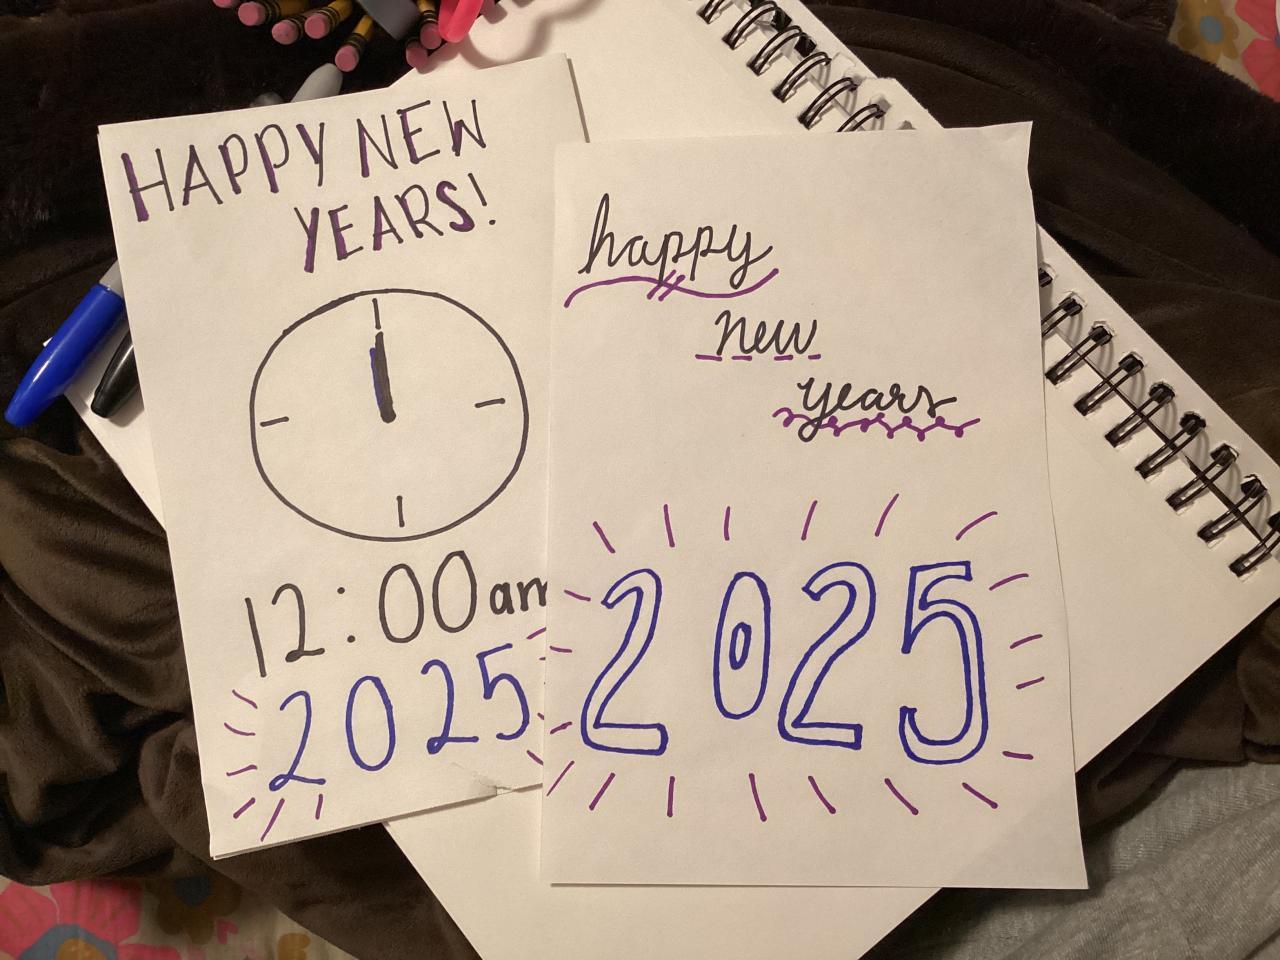 HAPPY NEW
YEARS!
12:00am
2025
happy
new
years
2025